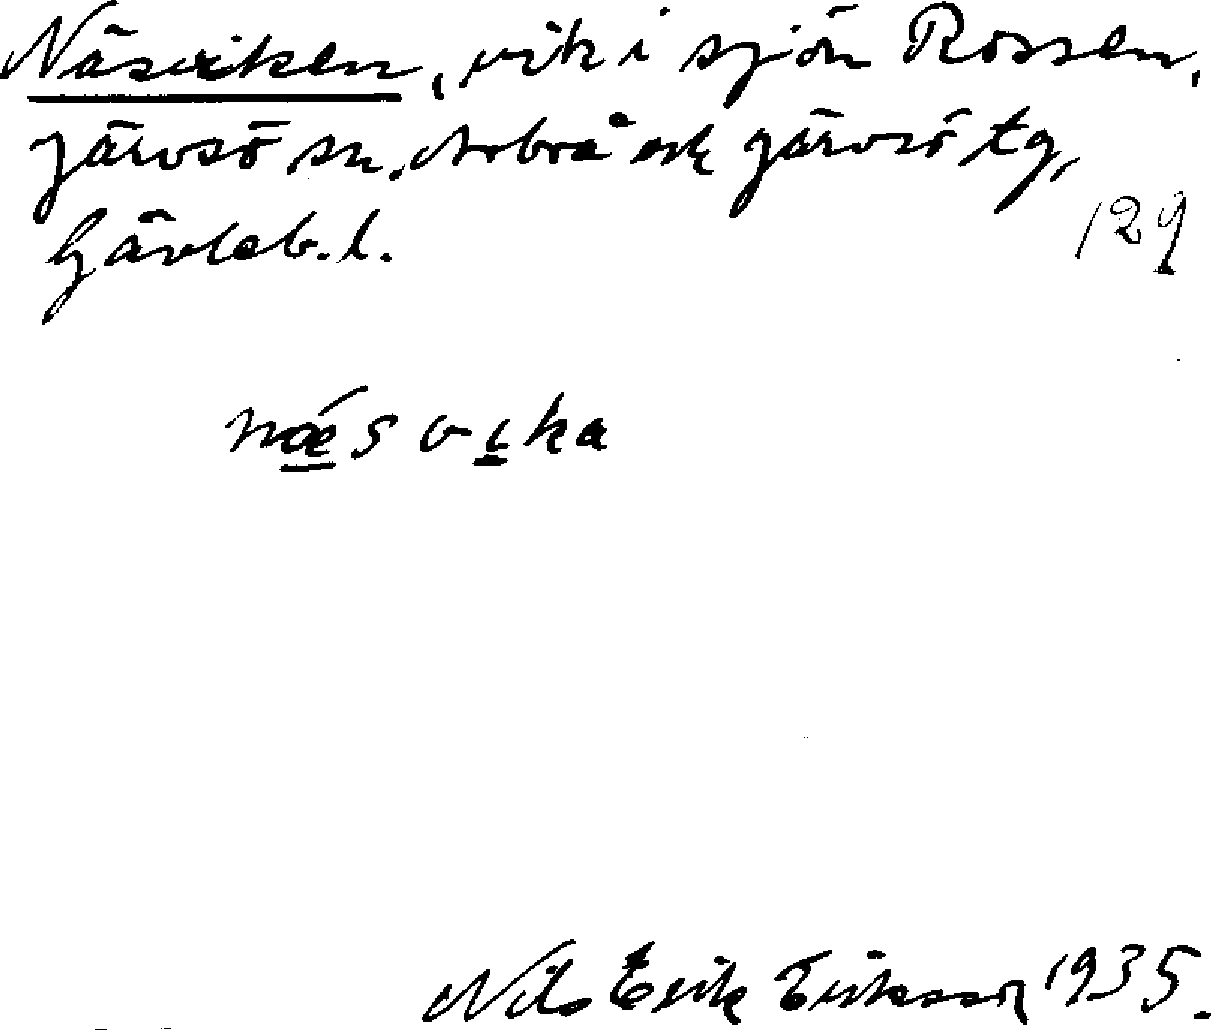 Näsviken, vik i sjön Rossen,
Järvsö sn. Arbrå och Järvsö tg,
Gävleb. l.
129
næ´s vika
Nils Erik Eriksson 1935.